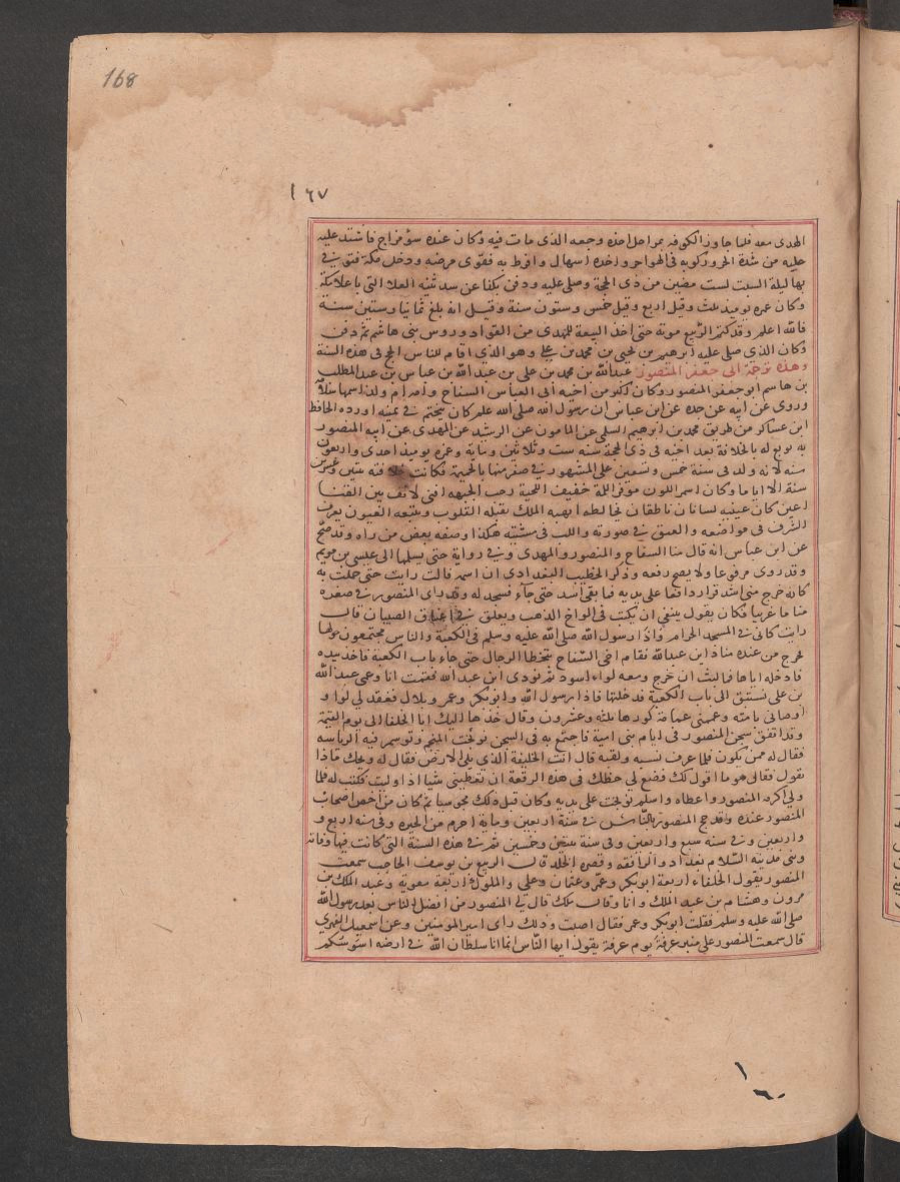 168
١٦٧
المهدى معه فلما جاوز الكوفه بمراحل اخذه وجعه الذى مات فيه وكان عنده سؤ مزاج فاشتد عليه
حليه من شدة الحر وركوبه فى الهواجر واخذه اسهال وافرط به فقوى مرضه ودخل مكة فتوفى
بها ليلة السبت لست مضين من ذى الحجة وصلى عليه ودفن بكفا عن سد ثنيه العلا التى باعلا مكة
وكان عمره يوميذ ثلث وقيل اربع وقيل خمس وستون سنة وقيل انه بلغ ثمانيا وستين سنة
فالله اعلم وقد كتم الربيع موته حتى اخذ البيعة للمهدى من القواد وروس بنى هاشم ثم دفن
وكان الذي صلى عليه ابرهيم بن يحيى بن محمد بن على وهو الذي اقام للناس الحج فى هذه السنة
وهذه ترجمة ابى جعفر المنصور عبدالله بن محمد بن على بن عبد الله بن عباس بن عبد المطلب
بن هاشم ابو جعفر المنصور وكان اكبر من اخيه ابى العباس السفاح وامه ام ولد اسمها سلامة
وروى عن ابيه عن جده عن ابن عباس ان رسول الله صلى الله علم كان يتختم فى يمينه اورده الحافظ
ابن عساكر من طريق محمد بن ابرهيم السلمى عن المامون عن الرشيد عن المهدى عن ابيه المنصور
به بويع له بالخلافة بعد اخيه فى ذى الحجة سنه ست وثلاثين وماية وعمره يوميذ احدى واربعون
سنه لانه ولد فى سنة خمس وتسعين على المشهور فى صفر منها بالحميمة فكانت خلافته ثنتين وعشرين
سنة الا اياما وكان اسمر اللون موفر اللمة خفيف اللحية رحب الجبهه اقنى الانف بين القنا
اعين كان عينيه لسانان ناطقان يخالطه ابهه الملك تقبله القلوب وتتبعه العيون يعرف
الشرف فى مواضعه والعتق فى صورته واللب فى مشيته هكذا وصفه بعض من راه وقد صح
عن ابن عباس انه قال منا السفاح والمنصور والمهدى وفى رواية حتى يسلمها الى عيسى بن مريم
وقد روى مرفوعا ولا يصح رفعه وذكر الخطيب البغدادى ان امه قالت رايت حتى حملت به
كانه خرج منى اسد فزار واقفا على يديه فما بقى اسد حتى جآء فسجد له وقد راى المنصور فى صغره
مناما غريبا فكان يقول ينبغى ان يكتب فى الواح الذهب ويعلق فى اعناق الصبيان قال
رايت كانى فى المسجد الحرام واذا رسول الله صلى الله عليه وسلم فى الكعبة والناس مجتمعون حولها
فخرج من عنده مناد اين عبد الله فقام اخى السفاح يتخطا الرجال حتى جاء باب الكعبة فاخذ بيده
فادخله اياها فما لبث ان خرج ومعه لواء اسود ثم نودى اين عبد الله فقمت انا وعمى عبد الله
بن على نستبق الى باب الكعبة فدخلتها فاذا رسول الله وابوبكر وعمر وبلال فعقد لى لوا و
اوصانى بامته وعممنى عمامة كورها ثلثه وعشرون وقال خذها اليك ابا الخلفا الى يوم القيمة
وقد اتفق سجن المنصور فى ايام بنى امية فاجتمع به فى السجن نوبخت المنجم وتوسم فيه الرياسه
فقال له ممن تكون فلما عرف نسبه ولقبه قال انت الخليفة الذى يلى الارض فقال له ويحك ماذا
تقول فقال هو ما اقول لك فضع لى خطك فى هذه الرقعة ان تعطينى شيا اذا وليت فكتب له فلما
ولى اكرمه المنصور واعطاه واسلم نوبخت على يديه وكان قبل ذلك مجوسيا ثم كان من اخص اصحاب
المنصور عنده وقد حج المنصور بالناس فى سنة اربعين وماية احرم من الحيره وفى سنه اربع و
واربعين وفى سنه سبع واربعين وفى سنة ثنتين وخمسين ثم فى هذه السنة التى كانت فيها وفاته
وبنى مدينه السلام بغداد والرافقه وقصره الخلد قال الربيع بن يوسف الحاجب سمعت
المنصور يقول الخلفاء اربعة ابوبكر وعمر وعثمان وعلى والملوك اربعة معوية وعبد الملك بن
مرون وهشام بن عبد الملك وانا وقال ملك قال لى المنصور من افضل الناس بعد رسول الله
صلى الله عليه وسلم فقلت ابوبكر وعمر فقال اصبت وذلك راى امير المؤمنين وعن اسمعيل الفهرى
قال سمعت المنصور على منبر عرفة يوم عرفة يقول ايها الناس انما انا سلطان الله فى ارضه اسوسكم